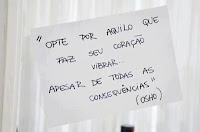 "OPTE POR AQUILO QUE
FAZ SEU CORAÇÃO
VIBRAR...
APESAR DE TODAS AS
CONSEQUÊNCIAS"
(OSHO)